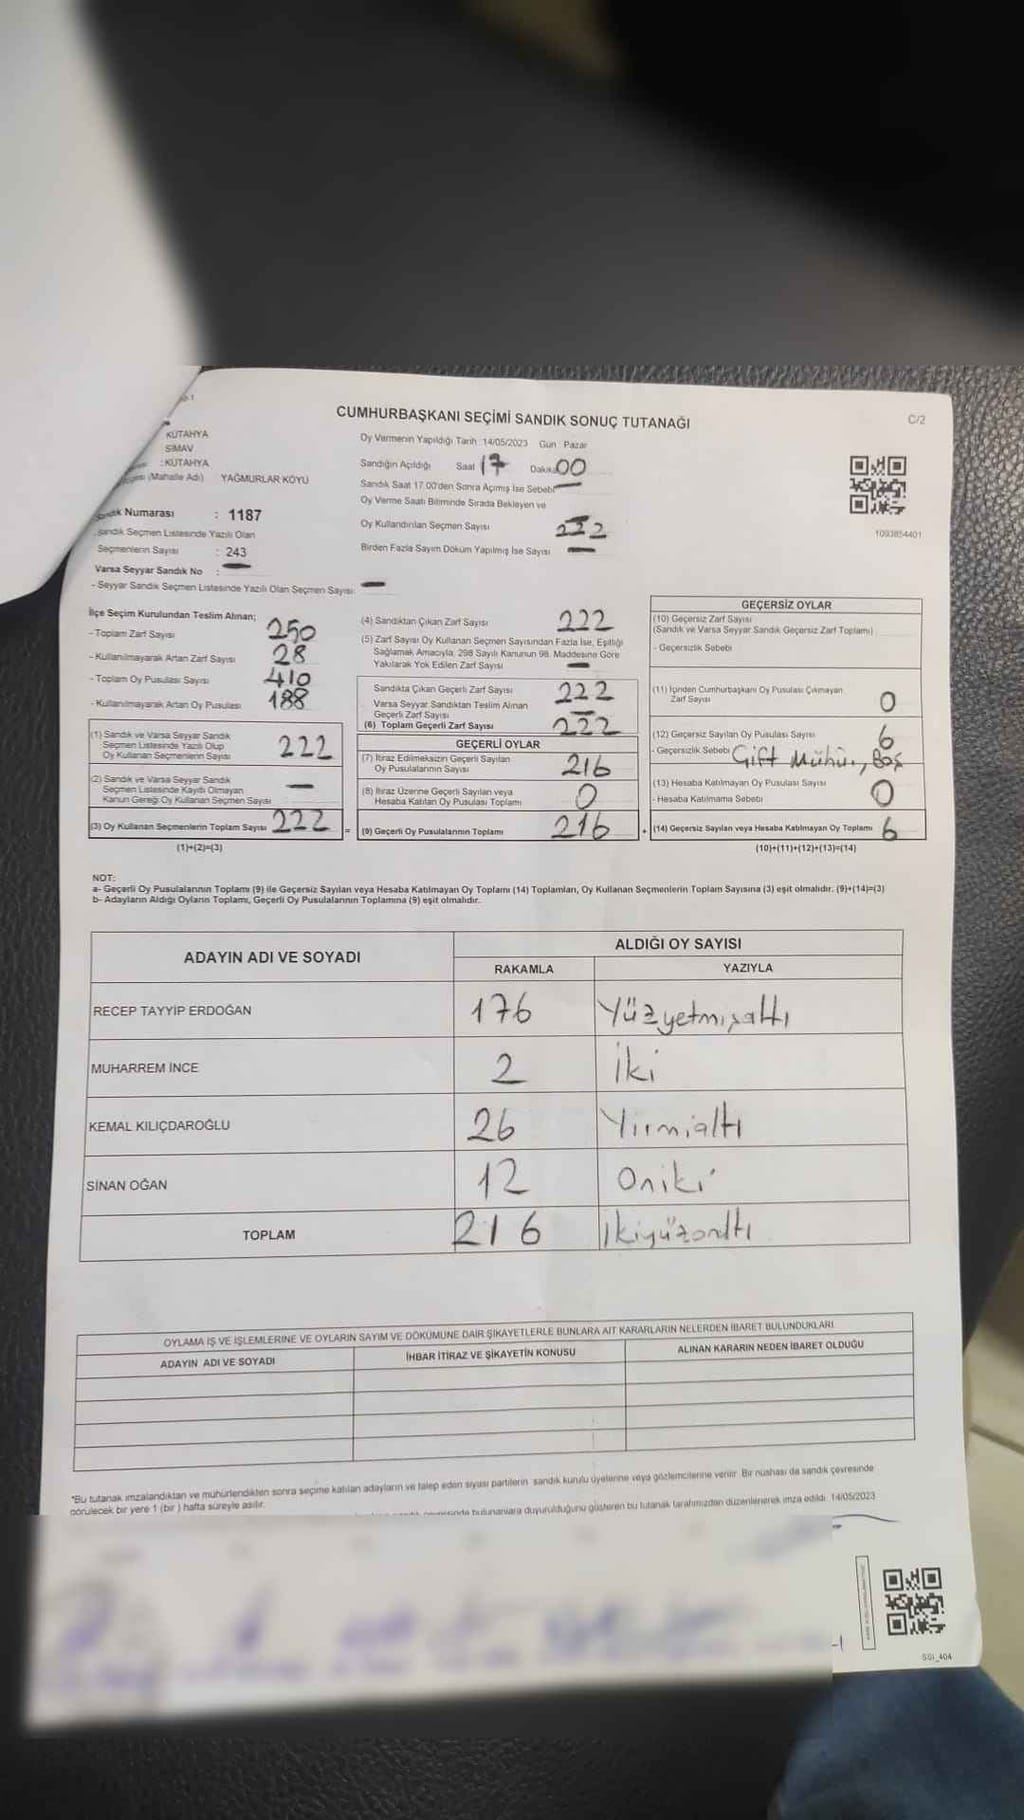 CUMHURBAŞKANI SEÇİMİ SANDIK SONUÇ TUTANAĞI
C/2
KÜTAHYA
SİMAV
: KÜTAHYA
(Mahalle Adı) YAĞMURLAR KÖYÜ
Sandık Numarası : 1187
Sandık Seçmen Listesinde Yazılı Olan
Seçmenlerin Sayısı : 243
Varsa Seyyar Sandık No : -
- Seyyar Sandık Seçmen Listesinde Yazılı Olan Seçmen Sayısı: -
Oy Vermenin Yapıldığı Tarih :14/05/2023 Gün : Pazar
Sandığın Açıldığı Saat 17 Dakika 00
Sandık Saat 17.00'den Sonra Açımış İse Sebebi -
Oy Verme Saati Bitiminde Sırada Bekleyen ve
Oy Kullandırılan Seçmen Sayısı
Birden Fazla Sayım Döküm Yapılmış İse Sayısı -
1093854401
İlçe Seçim Kurulundan Teslim Alınan;
- Toplam Zarf Sayısı 250
- Kullanılmayarak Artan Zarf Sayısı 28
- Toplam Oy Pusulası Sayısı 410
- Kullanılmayarak Artan Oy Pusulası 188
(1) Sandık ve Varsa Seyyar Sandık
Seçmen Listesinde Yazılı Olup
Oy Kullanan Seçmenlerin Sayısı 222
(2) Sandık ve Varsa Seyyar Sandık
Seçmen Listesinde Kayıtlı Olmayan
Kanun Gereği Oy Kullanan Seçmen Sayısı -
(3) Oy Kullanan Seçmenlerin Toplam Sayısı 222 =
(1)+(2)=(3)
(4) Sandıktan Çıkan Zarf Sayısı 222
(5) Zarf Sayısı Oy Kullanan Seçmen Sayısından Fazla İse, Eşitliği
Sağlamak Amacıyla, 298 Sayılı Kanunun 98. Maddesine Göre
Yakılarak Yok Edilen Zarf Sayısı -
Sandıkta Çıkan Geçerli Zarf Sayısı 222
Varsa Seyyar Sandıktan Teslim Alınan
Geçerli Zarf Sayısı -
(6) Toplam Geçerli Zarf Sayısı 222
GEÇERLİ OYLAR
(7) İtiraz Edilmeksizin Geçerli Sayılan
Oy Pusulalarının Sayısı 216
(8) İtiraz Üzerine Geçerli Sayılan veya
Hesaba Katılan Oy Pusulası Toplamı 0
(9) Geçerli Oy Pusulalarının Toplamı 216 +
GEÇERSİZ OYLAR
(10) Geçersiz Zarf Sayısı
(Sandık ve Varsa Seyyar Sandık Geçersiz Zarf Toplamı)
- Geçersizlik Sebebi
(11) İçinden Cumhurbaşkanı Oy Pusulası Çıkmayan
Zarf Sayısı 0
(12) Geçersiz Sayılan Oy Pusulası Sayısı 6
- Geçersizlik Sebebi Çift Mühür, Boş
(13) Hesaba Katılmayan Oy Pusulası Sayısı 0
- Hesaba Katılmama Sebebi
(14) Geçersiz Sayılan veya Hesaba Katılmayan Oy Toplamı 6
(10)+(11)+(12)+(13)=(14)
NOT:
a- Geçerli Oy Pusulalarının Toplamı (9) ile Geçersiz Sayılan veya Hesaba Katılmayan Oy Toplamı (14) Toplamları, Oy Kullanan Seçmenlerin Toplam Sayısına (3) eşit olmalıdır. (9)+(14)=(3)
b- Adayların Aldığı Oyların Toplamı, Geçerli Oy Pusulalarının Toplamına (9) eşit olmalıdır.
ADAYIN ADI VE SOYADI ALDIĞI OY SAYISI
RAKAMLA YAZIYLA
RECEP TAYYİP ERDOĞAN 176 Yüzyetmişaltı
MUHARREM İNCE 2 İki
KEMAL KILIÇDAROĞLU 26 Yirmialtı
SİNAN OĞAN 12 Oniki
TOPLAM 216 İkiyüzonaltı
OYLAMA İŞ VE İŞLEMLERİNE VE OYLARIN SAYIM VE DÖKÜMÜNE DAİR ŞİKAYETLERLE BUNLARA AİT KARARLARIN NELERDEN İBARET BULUNDUKLARI
ADAYIN ADI VE SOYADI İHBAR İTİRAZ VE ŞİKAYETİN KONUSU ALINAN KARARIN NEDEN İBARET OLDUĞU
*Bu tutanak imzalandıktan ve mühürlendikten sonra seçime katılan adayların ve talep eden siyasi partilerin sandık kurulu üyelerine veya gözlemcilerine verilir. Bir nüshası da sandık çevresinde
görülecek bir yere 1 (bir ) hafta süreyle asılır.
bulunanlara duyurulduğunu gösteren bu tutanak tarafımızdan düzenlenerek imza edildi. 14/05/2023
SGI_404